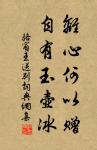 離心何以贈
自有玉壺冰
駱賓王送別詞典網集